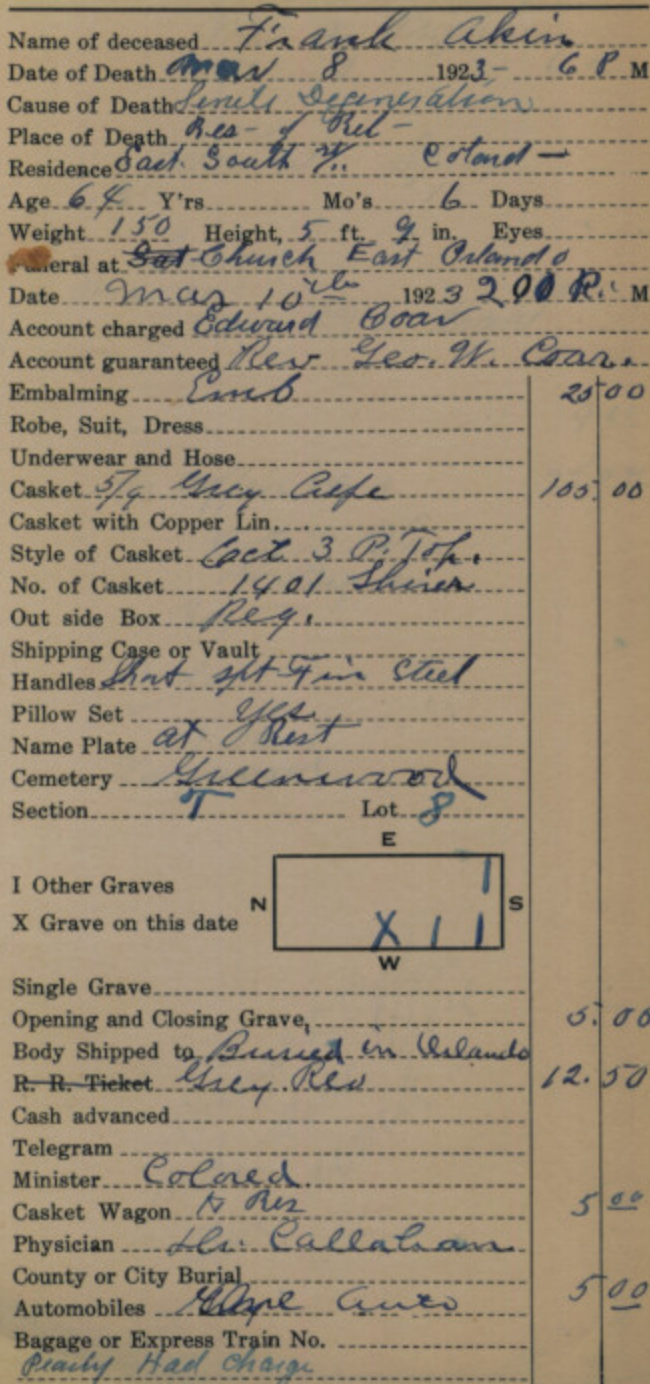 Name of deceased Frank Akin
Date of Death Mar 8 1923- 6 P M
Cause of Death Senile Degeneration
Place of Death Res- of Rel-
Residence East South St.
Age 64 Y'rs Mo's 6 Days
Weight 150 Height, 5 ft. 9 in. Eyes
Funeral at Church East Orlando
Date Mar 10th 1923 2:00 P. M
Account charged Edward Coar
Account guaranteed Rev Geo. W. Coar.
Embalming Emb 25 00
Robe, Suit, Dress
Underwear and Hose
Casket 5/9 Grey Crepe 105. 00
Casket with Copper Lin.
Style of Casket Oct 3 P. Top.
No. of Casket 1401 Shirer
Out side Box Reg.
Shipping Case or Vault
Handles Short Steel
Pillow Set Yes
Name Plate at Rest
Cemetery Greenwood
Section T Lot 8
E
I Other Graves
N S
X Grave on this date X I I I
W
Single Grave
Opening and Closing Grave, 5. 00
Body Shipped to Buried in Orlando
R. R. Ticket Grey 12. 50
Cash advanced
Telegram
Minister Colored.
Casket Wagon to Res 5 00
Physician Dr. Callahan
County or City Burial
Automobiles Auto 5 00
Bagage or Express Train No.
Pearly Had Charge